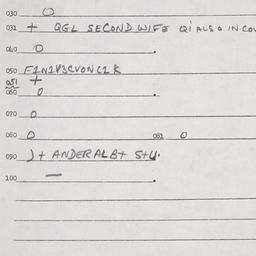 030 O
031 + QGL SECOND WIFE QI ALSO IN COU
040 O .
050 F1N1V3CVONC1K
051 +
060 O .
070 O
080 O 081 O
090 )+ ANDERALB+ S+U.
100 — .